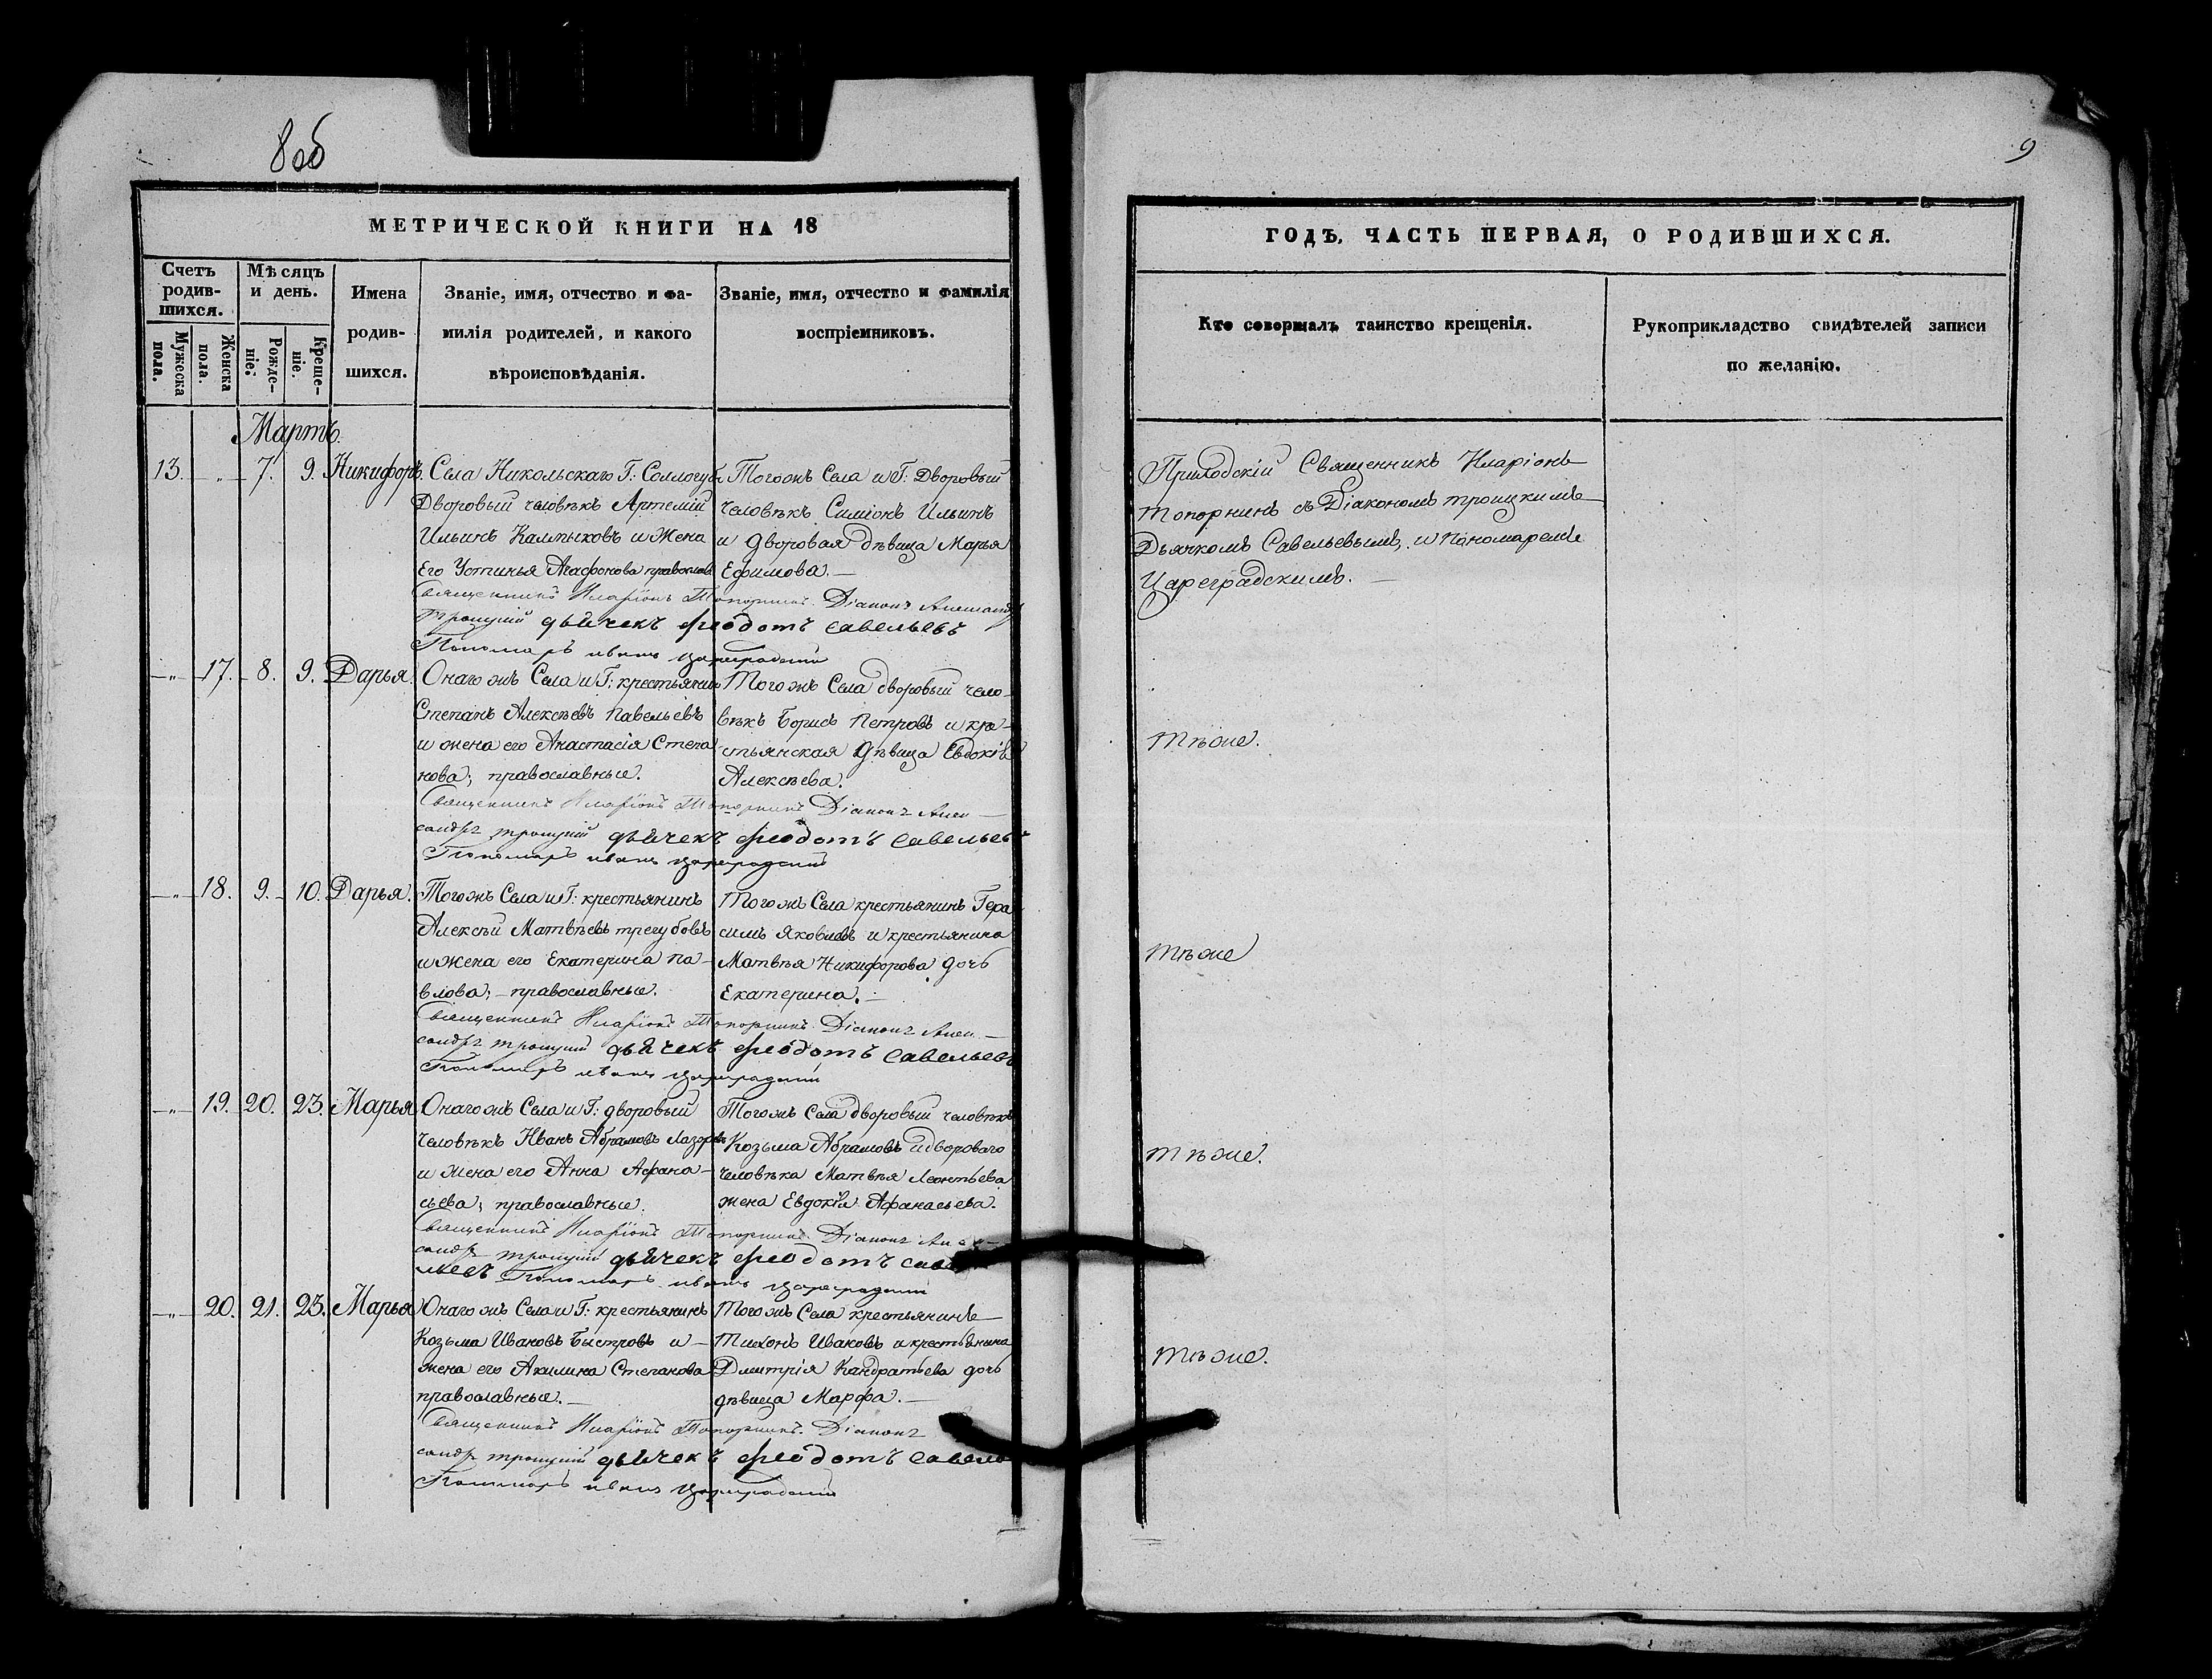 8 об
9
МЕТРИЧЕСКОЙ КНИГИ НА 18
Счетъ родив-шихся.
Мѣсяцъ и день.
Мужеска пола.
Женска пола.
Рожде-ніе.
Креще-ніе.
Имена родив-шихся.
Званіе, имя, отчество и фа-
милія родителей, и какого
вѣроисповѣданія.
Званіе, имя, отчество и фамилія
воспріемниковъ.
Мартъ.
13. - „ - 7. 9. Никифоръ.
Села Никольскаго Г: Соллогубъ
Дворовый человѣкъ Артемій
Ильинъ Калмыковъ и жена
Его Устинья Агафонова православ
Тогожъ Села и Г: Дворовый
человѣкъ Симіонъ Ильинъ
и дворовая дѣвица Марья
Ефимова. —
Священникъ Иларіонъ Топорнинъ Діаконъ Александръ
Троицкій дьячекъ Феодотъ Савельевъ
Пономарь иванъ Цареградскій
- „ - 17. 8. 9. Дарья.
Онагожъ Села и Г: крестьянинъ
Степанъ Алексѣевъ Павельевъ
и жена его Анастасія Степа
нова; православные.
Тогожъ Села дворовый чело-
вѣкъ Борисъ Петровъ и кре-
стьянская дѣвица Евдокія
Алексѣева.
Священникъ Иларіонъ Топорнинъ Діаконъ Алек-
сандръ Троицкій дьячекъ Феодотъ Савельевъ
Пономарь иванъ Цареградскій
- „ - 18. 9. 10. Дарья.
Тогожъ Села и Г: крестьянинъ
Алексѣй Матвѣевъ трегубовъ
и жена его Екатерина Па-
влова; - православные.
Тогожъ Села крестьянинъ Гера
симъ Яковлевъ и крестьянина
Матвѣя Никифорова дочь
Екатерина. —
Священникъ Иларіонъ Топорнинъ Діаконъ Алек-
сандръ Троицкій дьячекъ Феодотъ Савельевъ
Пономарь иванъ Цареградскій
- „ - 19. 20. 23. Марья
Онагожъ Села и Г: дворовый
человѣкъ Иванъ Абрамовъ Лазаревъ
и жена его Анна Афана-
сьева; православные.
Тогожъ Села дворовый человѣкъ
Козьма Абрамовъ и двороваго
человѣка Матвѣя Леонтьева
жена Евдокія Афанасьева.
Священникъ Иларіонъ Топорнинъ Діаконъ
сандръ Троицкій дьячекъ Феодотъ
Пономарь иванъ Цареградскій
- „ - 20. 21. 23. Марья
Онагожъ Села и Г: крестьянинъ
Козьма Ивановъ Быстровъ и -
жена его Акилина Степанова
православные. —
Тогожъ Села крестьянинъ
Тихонъ Ивановъ и крестьянина
Дмитрія Кандратьева дочь
дѣвица Марфа. —
Священникъ Иларіонъ Топорнинъ. Діаконъ
сандръ Троицкій дьячекъ Феодотъ
Пономарь иванъ Цареградскій
ГОДЪ, ЧАСТЬ ПЕРВАЯ, О РОДИВШИХСЯ.
Кто совершалъ таинство крещенія.
Рукоприкладство свидѣтелей записи
по желанію.
Приходскій Священникъ Иларіонъ
Топорнинъ съ Діакономъ троицкимъ
Дьячкомъ Савельевымъ, и Пономаремъ
Цареградскимъ. —
тѣже.
тѣже
тѣже.
тѣже.